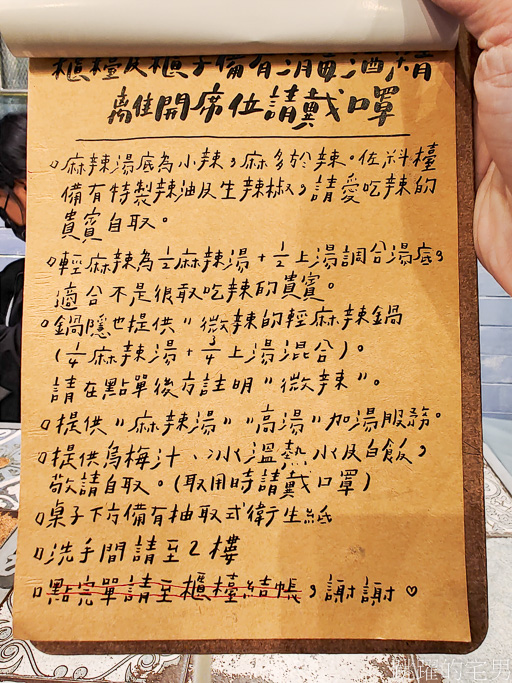 櫃檯及櫃子備有消毒酒精
離開席位請戴口罩
麻辣湯底為小辣，麻多於辣。佐料檯
備有特製辣油及生辣椒，請愛吃辣的
貴賓自取。
輕麻辣為½麻辣湯+½上湯調合湯底，
適合不是很敢吃辣的貴賓。
鍋隱也提供"微辣的輕麻辣鍋
(¼麻辣湯+¾上湯混合)。
請在點單後方註明"微辣"。
提供"麻辣湯""高湯"加湯服務。
提供烏梅汁、冰溫熱水及白飯，
敬請自取。(取用時請戴口罩)
桌子下方備有抽取式衛生紙
洗手間請至2樓
點完單請至櫃檯結帳，謝謝♡
跳躍的宅男